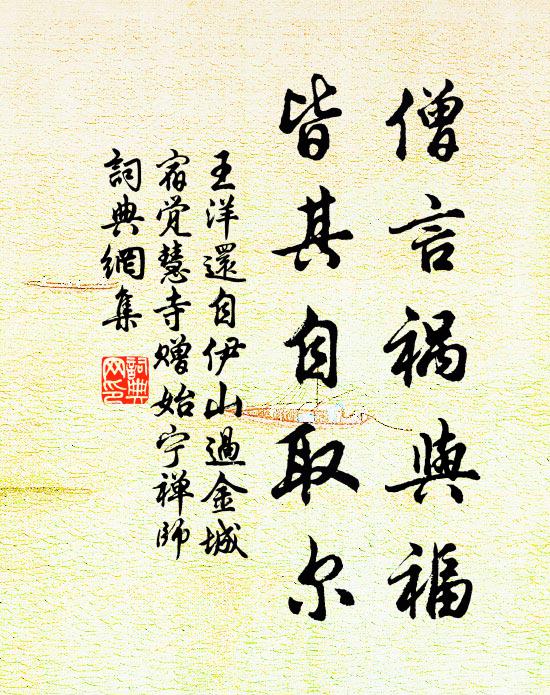 僧言祸與福
皆其自取尔
王洋還自伊山過金城
宿觉慧寺贈始宁禅師
詞典網集
詞典
网印